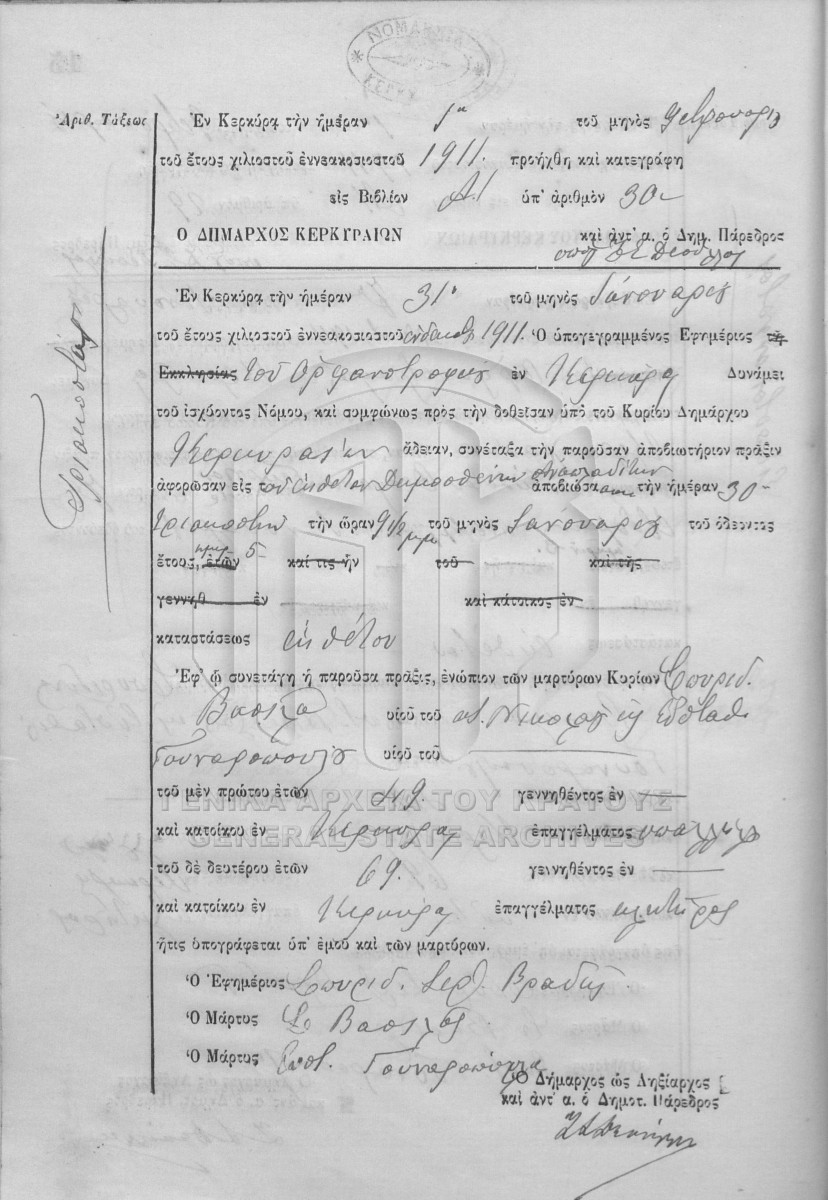 Ἀριθ. Τάξεως
Ἐν Κερκύρᾳ τὴν ἡμέραν 1η τοῦ μηνὸς
τοῦ ἔτους χιλιοστοῦ ἐννεακοσιοστοῦ 1911. προήχθη καὶ κατεγράφη
εἰς Βιβλίον Α1 ὑπ' ἀριθμὸν 30
Ὁ ΔΗΜΑΡΧΟΣ ΚΕΡΚΥΡΑΙΩΝ καὶ ἀντ' α. ὁ Δημ. Πάρεδρος
Ἐν Κερκύρᾳ τὴν ἡμέραν 31 τοῦ μηνὸς Ἰανουαρίου
τοῦ ἔτους χιλιοστοῦ ἐννεακοσιοστοῦ ἑνδεκάτου 1911. Ὁ ὑπογεγραμμένος Ἐφημέριος τῆς
Ἐκκλησίας τοῦ Ὀρφανοτροφείου ἐν Κερκύρᾳ Δυνάμει
τοῦ ἰσχύοντος Νόμου, καὶ συμφώνως πρὸς τὴν δοθεῖσαν ὑπὸ τοῦ Κυρίου Δημάρχου
Κερκυραίων ἄδειαν, συνέταξα τὴν παροῦσαν ἀποβιωτήριον πρᾶξιν
ἀφορῶσαν εἰς τὸν ἔκθετον ἀποβιώσαντα τὴν ἡμέραν 30
τριακοστὴν τὴν ὥραν 9 1/2 μμ τοῦ μηνὸς Ἰανουαρίου τοῦ ὁδεύοντος
ἔτους, ἐτῶν ἡμερ. 5 καί τις ἦν τοῦ καὶ τῆς
γεννηθ ἐν καὶ κάτοικος ἐν
καταστάσεως ἐκθέτου
Ἐφ' ᾧ συνετάγη ἡ παροῦσα πρᾶξις, ἐνώπιον τῶν μαρτύρων Κυρίων Σπυρίδ.
Βασιλᾶ υἱοῦ τοῦ ἀπ. Νικολάου κ Εὐσταθ
Γουναροπούλου υἱοῦ τοῦ
τοῦ μὲν πρώτου ἐτῶν 49. γεννηθέντος ἐν
καὶ κατοίκου ἐν Κερκύρᾳ ἐπαγγέλματος ὑπαλλήλου
τοῦ δὲ δευτέρου ἐτῶν 69. γεννηθέντος ἐν
καὶ κατοίκου ἐν Κερκύρᾳ ἐπαγγέλματος κλητῆρος
ἥτις ὑπογράφεται ὑπ' ἐμοῦ καὶ τῶν μαρτύρων.
Ὁ Ἐφημέριος Σπυρίδ. Ἱερ. Βραδῆς
Ὁ Μάρτυς Σ Βασιλᾶς
Ὁ Μάρτυς Εὐστ. Γουναρόπουλος
Ὁ Δήμαρχος ὡς Ληξίαρχος
καὶ ἀντ' α. ὁ Δημοτ. Πάρεδρος
ΓΕΝΙΚΑ ΑΡΧΕΙΑ ΤΟΥ ΚΡΑΤΟΥΣ
GENERAL STATE ARCHIVES